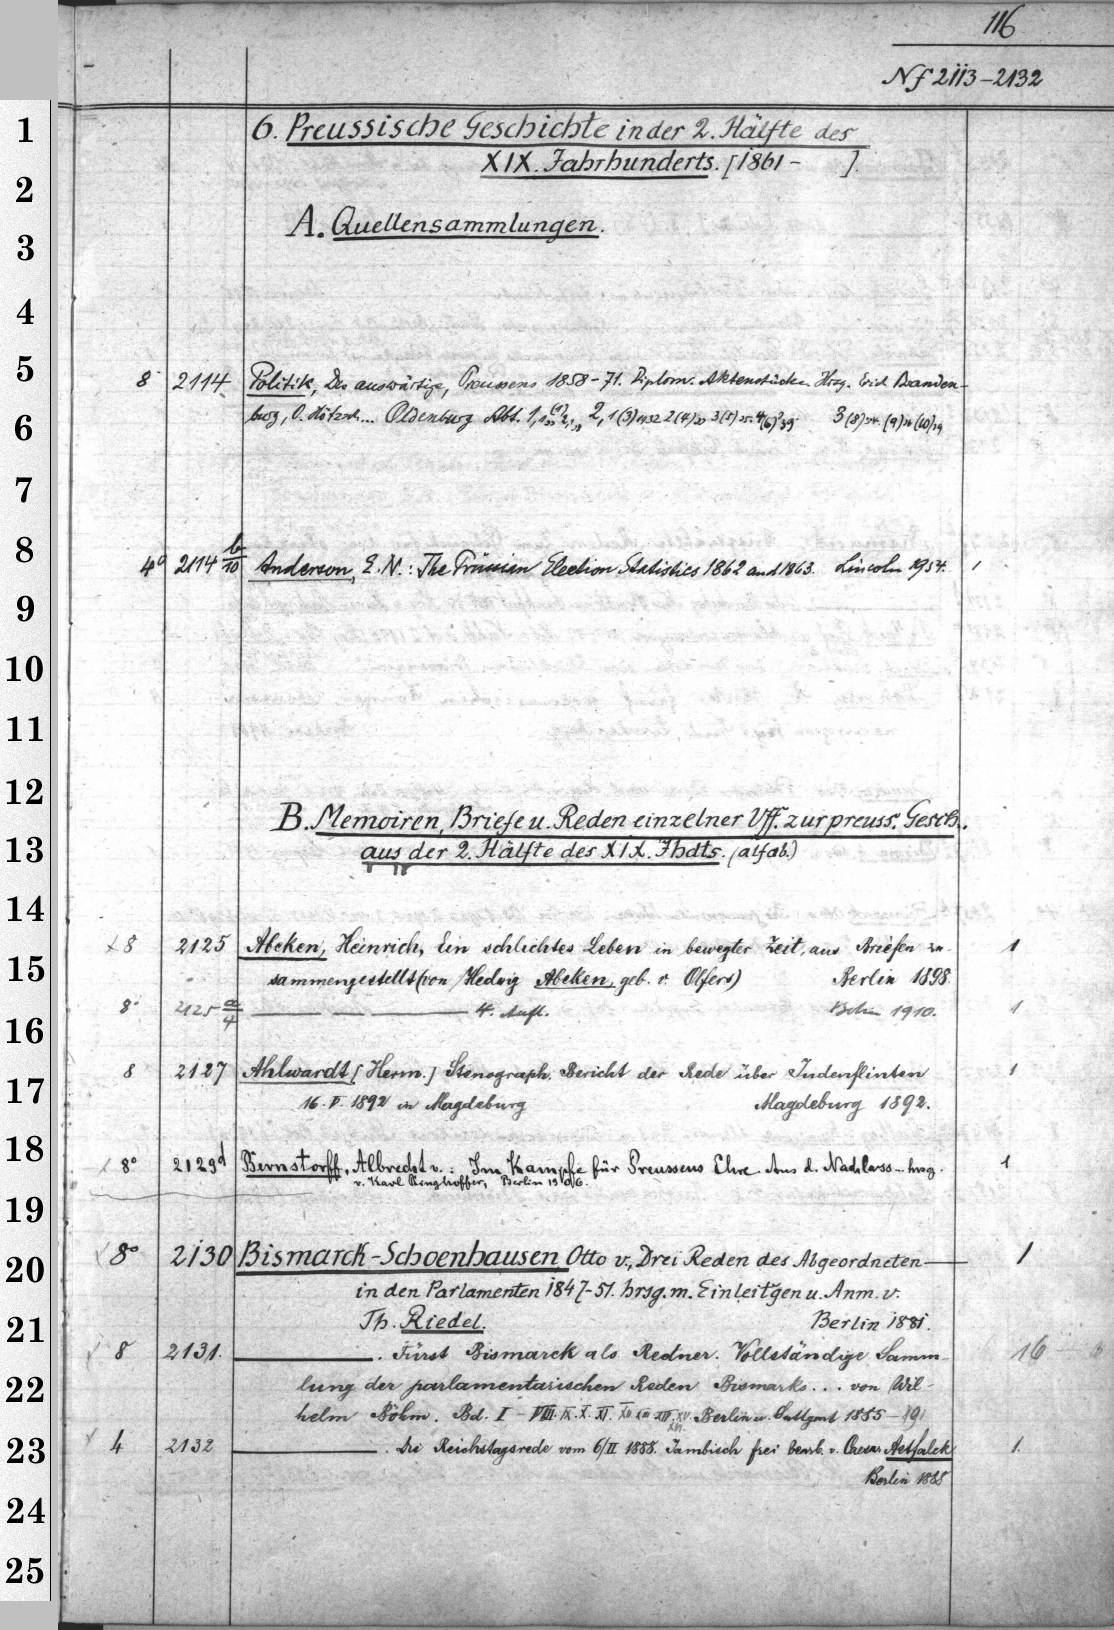 116
Nf 2113-2132
1
6. Preussische Geschichte in der 2. Hälfte des
XIX. Jahrhunderts. [1861 - ].
2
A. Quellensammlungen.
3
4
5
8° 2114 Politik, Die auswärtige, Preussens 1858-71. Diplom. Aktenstücke. Hrsg. Erich Branden-
6
burg, O. Hötzsch... Oldenburg Abt. 1, 2,
7
8
4° 2114 b/10 Anderson, E. N.: The Prussian Election Statistics 1862 and 1863. Lincoln 1954. 1
9
10
11
12
B. Memoiren, Briefe u. Reden einzelner Vff. zur preuss. Gesch.
13
aus der 2. Hälfte des XIX. Jhdts. (alfab.)
14
8 2125 Abeken, Heinrich, Ein schlichtes Leben in bewegter Zeit, aus Briefen zu- 1
15
sammengestellt (von Hedwig Abeken, geb. v. Olfers) Berlin 1898.
8° 2125 a/4 4. Aufl. Berlin 1910. 1
16
8 2127 Ahlwardt [Herm.] Stenograph. Bericht der Rede über Judenflinten 1
17
16. V. 1892 in Magdeburg Magdeburg 1892.
18
8° 2129d Bernstorff, Albrecht v.: Im Kampfe für Preussens Ehre. Aus d. Nachlass - hrsg. 1
v. Karl Ringhoffer, Berlin 1906.
19
8° 2130 Bismarck-Schoenhausen, Otto v., Drei Reden des Abgeordneten 1
20
in den Parlamenten 1847-51. hrsg. m. Einleitgen u. Anm. v.
21
Th. Riedel. Berlin 1881.
8 2131. . Fürst Bismarck als Redner. Vollständige Samm- 16
22
lung der parlamentarischen Reden Bismarks... von Wil-
helm Böhm. Bd. I - VIII. IX. X. XI. XII XIII XIV. XV. XVI. Berlin u. Stuttgart 1885 - 191
23
4 2132 . Die Reichstagsrede vom 6/II 1888. Jambisch frei bearb. v. Caesar Astfalck 1.
Berlin 1888
24
25